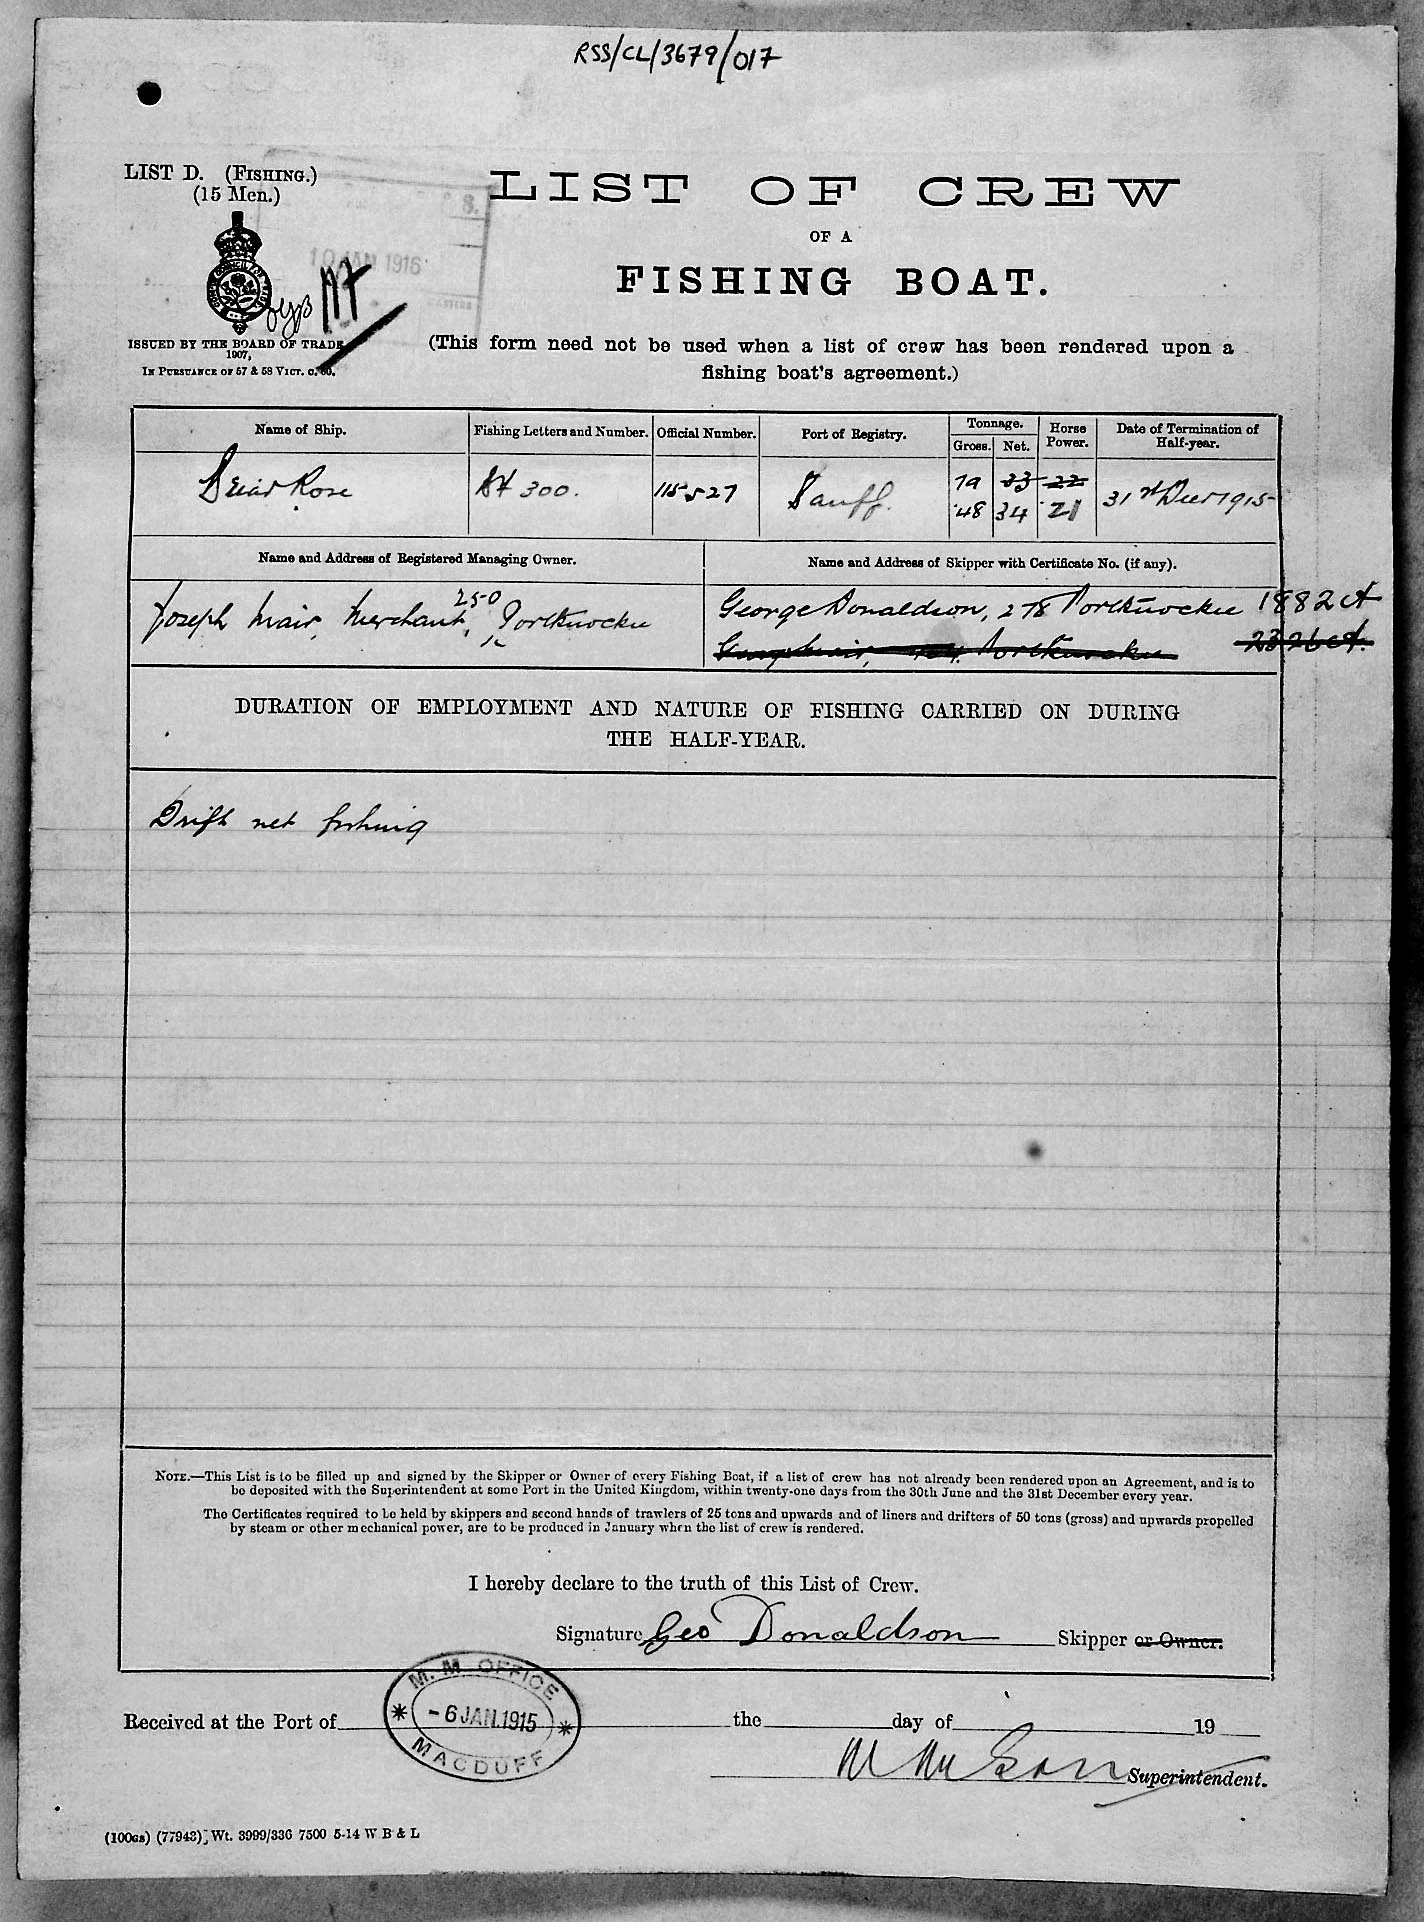 RSS/CL/3679/017
LIST D. (FISHING.)
(15 Men.)
S.
10 JAN 1916
ISSUED BY THE BOARD OF TRADE
1907,
IN PURSUANCE OF 57 & 58 VICT. C. 60.
LIST OF CREW
OF A
FISHING BOAT.
(This form need not be used when a list of crew has been rendered upon a
fishing boat's agreement.)
Name of Ship. Fishing Letters and Number. Official Number. Port of Registry. Tonnage. Gross. Net. Horse Power. Date of Termination of Half-year.
Briar Rose 300. 115527 Banff. 79 33 22 31st Decr 1915
.48 34 21
Name and Address of Registered Managing Owner. Name and Address of Skipper with Certificate No. (if any).
Joseph Mair, Merchant, 250 Portknockie George Donaldson, 278 Portknockie 1882 A
Portknockie 2326 A.
DURATION OF EMPLOYMENT AND NATURE OF FISHING CARRIED ON DURING
THE HALF-YEAR.
Drift net fishing
NOTE.—This List is to be filled up and signed by the Skipper or Owner of every Fishing Boat, if a list of crew has not already been rendered upon an Agreement, and is to
be deposited with the Superintendent at some Port in the United Kingdom, within twenty-one days from the 30th June and the 31st December every year.
The Certificates required to be held by skippers and second hands of trawlers of 25 tons and upwards and of liners and drifters of 50 tons (gross) and upwards propelled
by steam or other mechanical power, are to be produced in January when the list of crew is rendered.
I hereby declare to the truth of this List of Crew.
Signature Geo Donaldson Skipper or Owner.
M. M. OFFICE
- 6 JAN. 1915
MACDUFF
Received at the Port of the day of 19
Superintendent.
(100GS) (77943) Wt. 3999/336 7500 5-14 W B & L